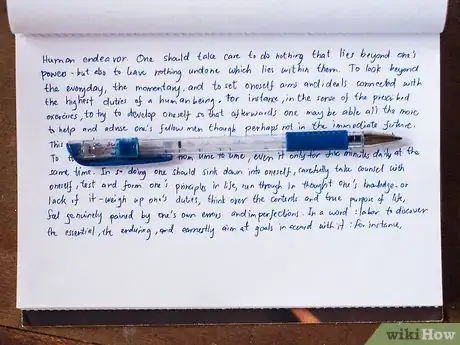 Human endeavor. One should take care to do nothing that lies beyond one's
powers - but also to leave nothing undone which lies within them. To look beyond
the everyday, the momentary, and to set oneself aims and ideals connected with
the highest duties of a human being. For instance, in the serve of the prescribed
exercises, to try to develop oneself so that afterwards one may be able all the more
to help and advise one's fellow men though perhaps not in the immediate future.
This
To them time to time, even if only for five minutes daily at the
same time. In so doing one should sink down into oneself, carefully take counsel with
oneself, test and form one's principles in life, run through in thought one's knowledge - or
lack of it - weigh up one's duties, think over the contents and true purpose of life,
feel genuinely pained by one's own errors and imperfections. In a word : labor to discover
the essential, the enduring, and earnestly aim at goals in accord with it : for instance,
wikiHow